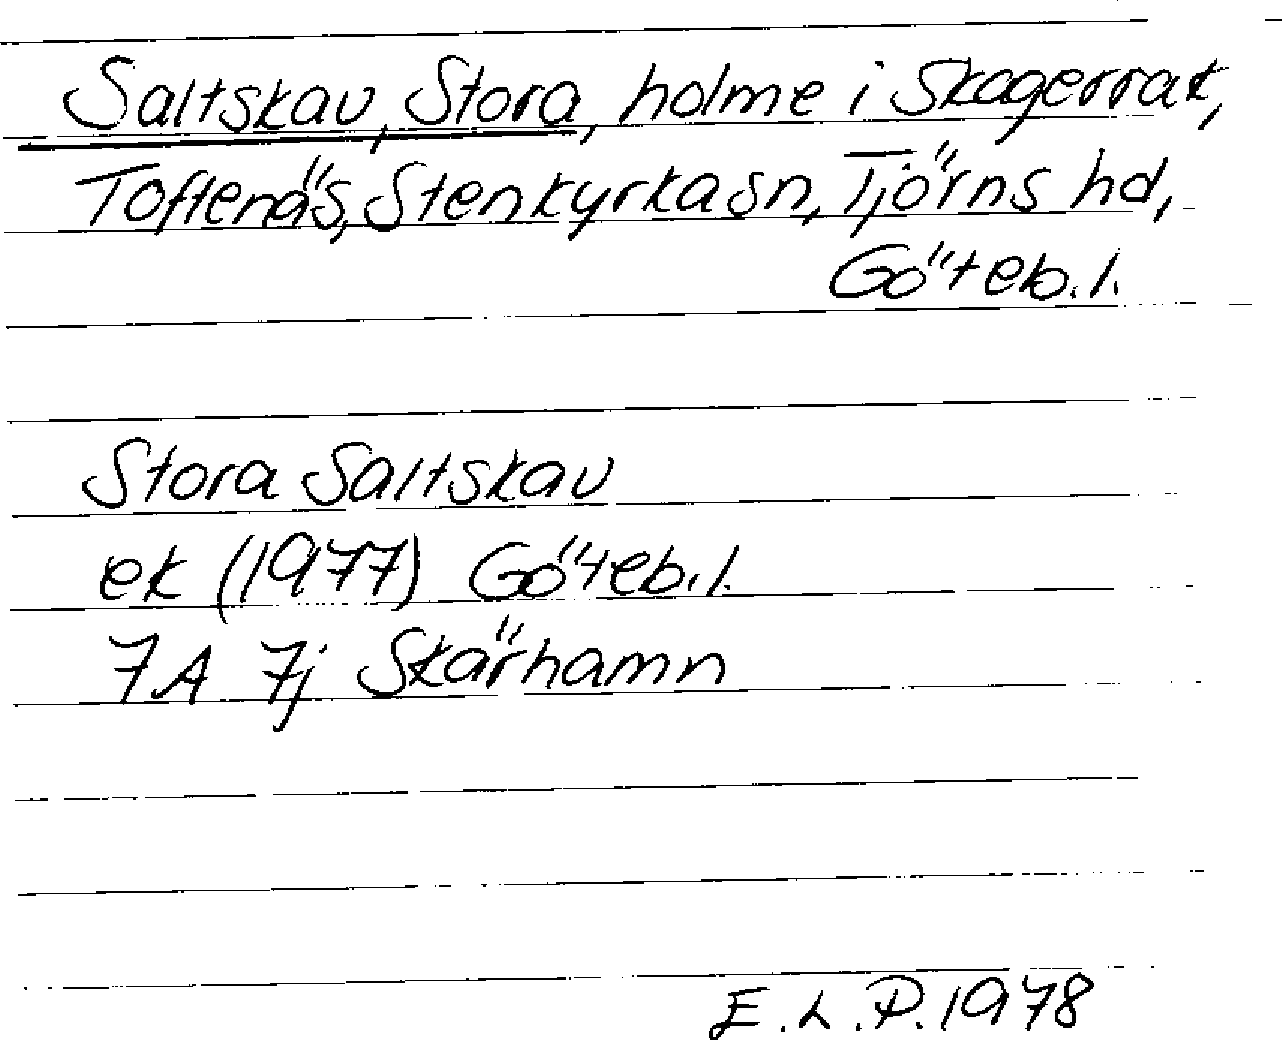 Saltskav, Stora, holme i Skagerrak,
Toftenäs, Stenkyrka sn, Tjörns hd,
Göteb. l.
Stora Saltskav
ek (1977) Göteb. l.
7A 7j Skärhamn
E. L. P. 1978